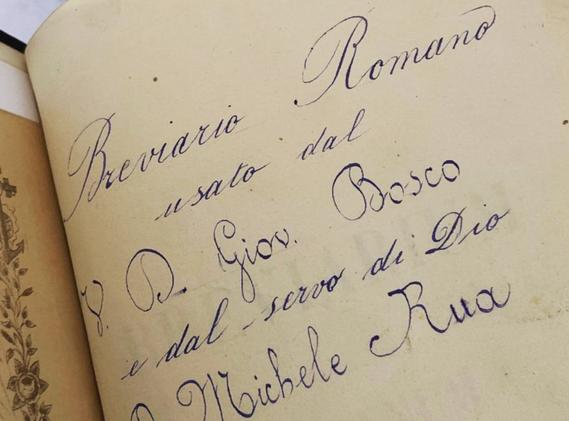 Breviario Romano
usato dal
V. D. Giov. Bosco
e dal servo di Dio
D. Michele Rua